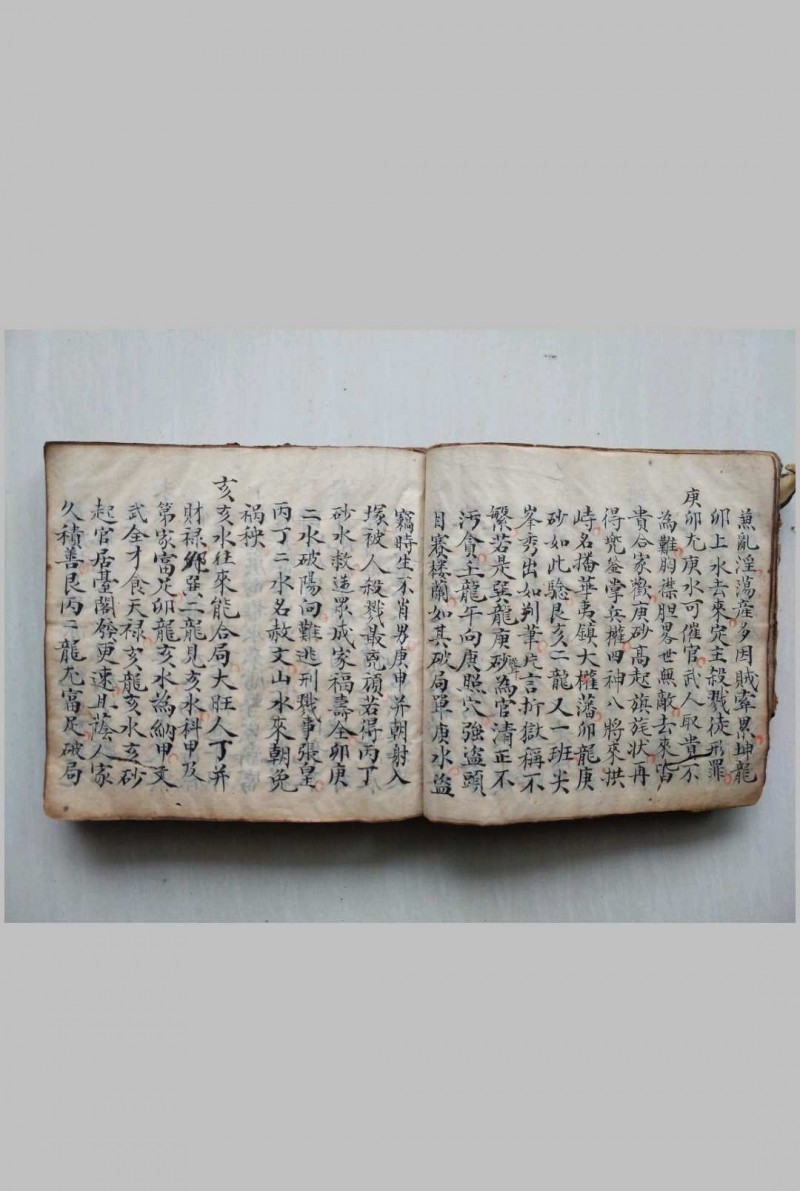 蕉亂淫蕩產多因賊牽累坤龍
卯上水去來定主殺戮徒形罪
庚卯尢庚水可催官武人取貴不
為難胸襟胆畧世無敵去來富
貴合家歡庚砂高起旗旄狀再
得兜鍪掌兵權四神八將來拱
峙名播華夷鎮大權藩卯龍庚
砂如此驗艮亥二龍又一班尖
峯秀出如判筆片言折獄稱不
繁若是巽龍庚砂為官清正不
汚貪壬龍午向庚照穴強盜頭
目寨樓蘭如其破局單庚水盜
竊時生不肖男庚申并朝射入
塚被人殺戮最兇頑若得丙丁
砂水救造眾成家福壽全卯庚
二水破陽向難逃刑戮事張皇
丙丁二水名赦文山水來朝免
禍秧
亥亥水往來能合局大旺人丁并
財禄鄉巽二龍見亥水科甲及
第家富足卯龍亥水為納甲文
武全才食天禄亥龍亥水亥砂
起官居臺閣發更速且蔭人家
久積善艮丙二龍尢富足破局